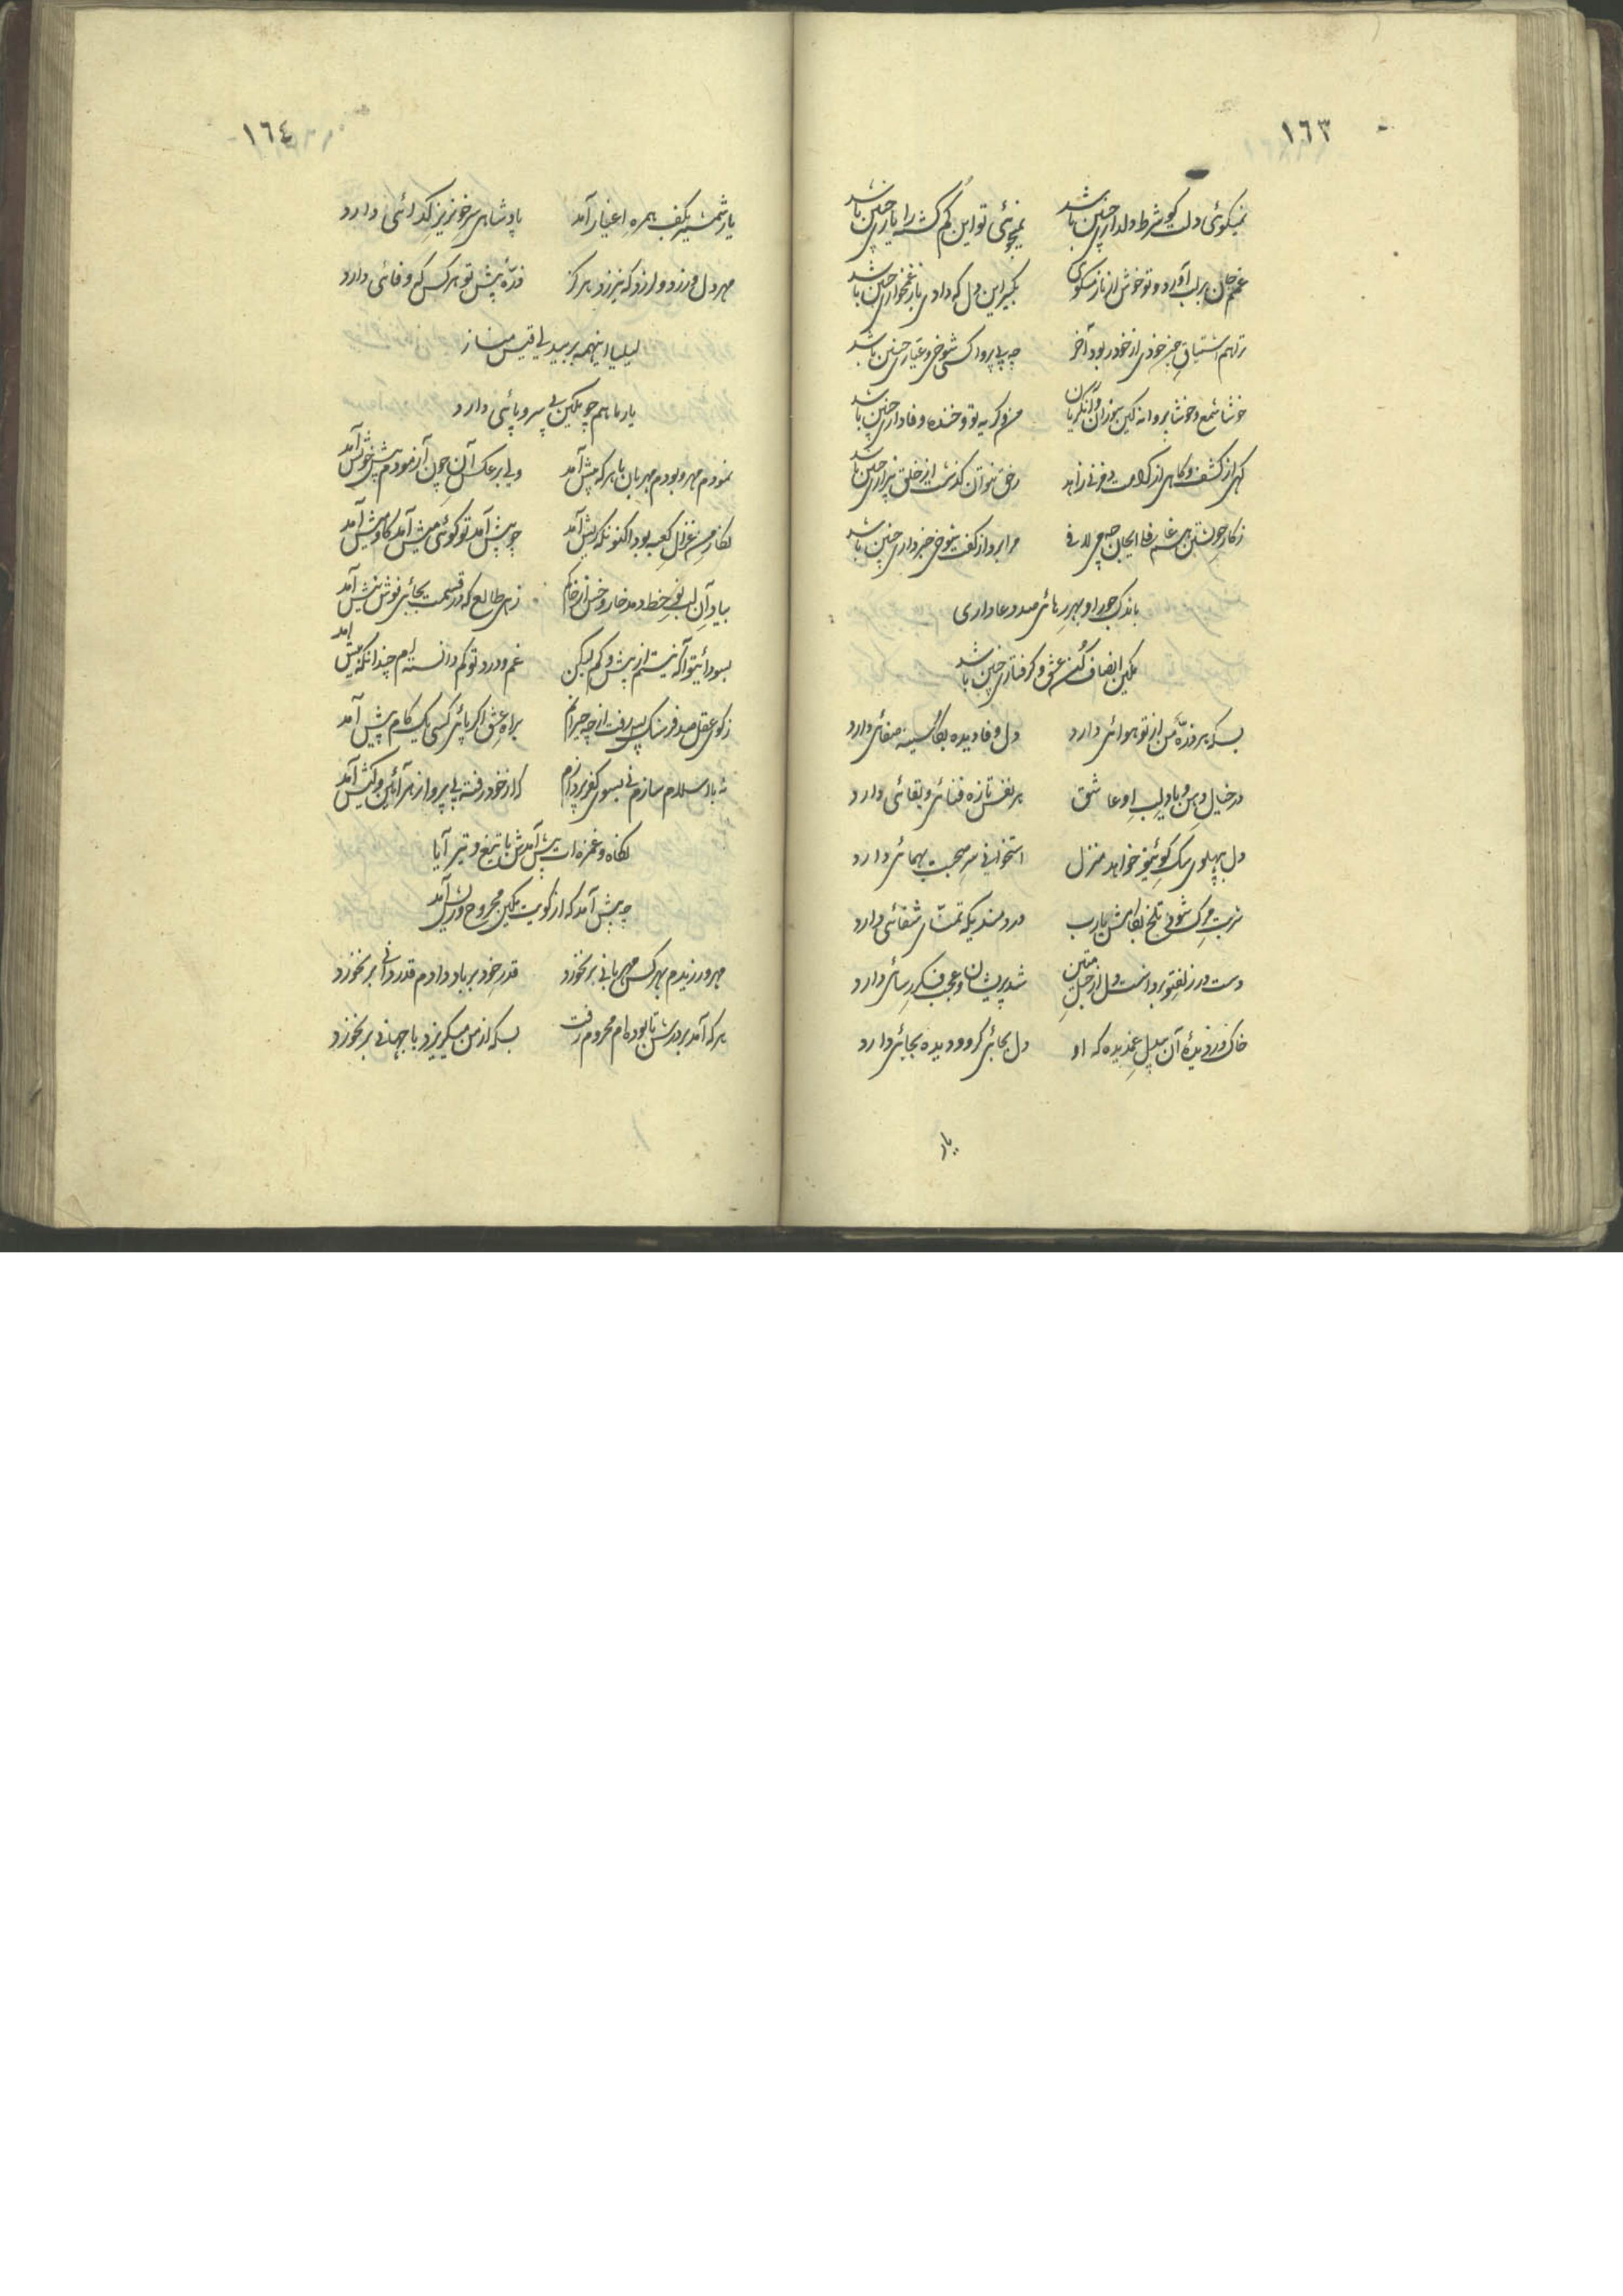 ١٦٣
نمیگوئی دلت کو شرط دلداری چنین باشد نمیجوئی تو این گم گشته را یاری چنین باشد
غمم جان بر لب آورد و تو خوش از ناز میگوئی بگیر این دل که دادی باز غمخواری چنین باشد
ترا هم اشتیاق چون خودی از خود ربود آخر چه بی پروا کسی شوخی و عیاری چنین باشد
خوشا شمع و خوشا پروانه کین سوزان و آن گریان من و گریه تو و خنده وفاداری چنین باشد
گهی از کشف و گاهی از کرامت دم زنی زاهد
ز کار خویشتن هم غافلی
باندک جور او بهر رهائی صد دعا داری
مکین انصاف کن عشق و گرفتاری چنین باشد
بسکه هر ذرّه من از تو هوائی دارد دل وفا دیده بکا سینه صفائی دارد
در خیال دهن و یاد لب او عاشق هر نفس تازه فنائی و بقائی دارد
دل بپهلوی سگ کوئیتو خواهد منزل استخوانی سر صحبت بهمائی دارد
شربت مرگ شود تلخ بکامش یارب دردمندیکه تمنّای شفائی دارد
دست در زلف تو برداشت دل از حبل متین شد پریشان و عجب فکر رسائی دارد
خاک در دیدهٔ آن بیدل غمدیده که او دل بجائی گرو و دیده بجائی دارد
یار
١٦٤
یار شمشیر بکف همره اغیار آمد پادشاهی سر خونریز گدائی دارد
مهر دل ورزد و لرزد که نیرزد هرگز ذرّه پیش تو هر کس که وفائی دارد
لیلیا اینهمه بر بیدلی قیس مناز
یار ما هم چو مکین بی سر و پائی دارد
نمودم مهر و بودم مهربان با هر که پیش آمد ولی بر عکس آن چون آزمودم پیش خویش آمد
نگار من غزال کعبه بود اکنونکه ریش آمد چو پیش آمد تو گوئی میش آمد گاومیش آمد
بیاد آن لب نوخط دمد خار و خس از خاکم زهی طالع که در قسمت بجای نوش نیش آمد
بسودائیتو آگه نیستم از بیش و کم لیکن غم و درد تو کم دانسته‌ام چندانکه بیش آمد
ز کوی عقل صد فرسنگ پس رفت از چه حیرانم براه عشق اگر پای کسی یک گام پیش آمد
نه با اسلام سازم نی بسوی کفر پردازم که از خود رفته بی پروا ز هر آئین و کیش آمد
نگاه و غمزه‌ات پیش آمدش با تیغ و تیر آیا
چه پیش آمد که از کویت مکین مجروح و ریش آمد
مهر ورزیدم بهر کس مهربانی برنخورد قدر خود بر باد دادم قدردانی برنخورد
هر که آمد بر درش تا بوده‌ام محروم رفت بسکه از من میگریزد با جهانی برنخورد